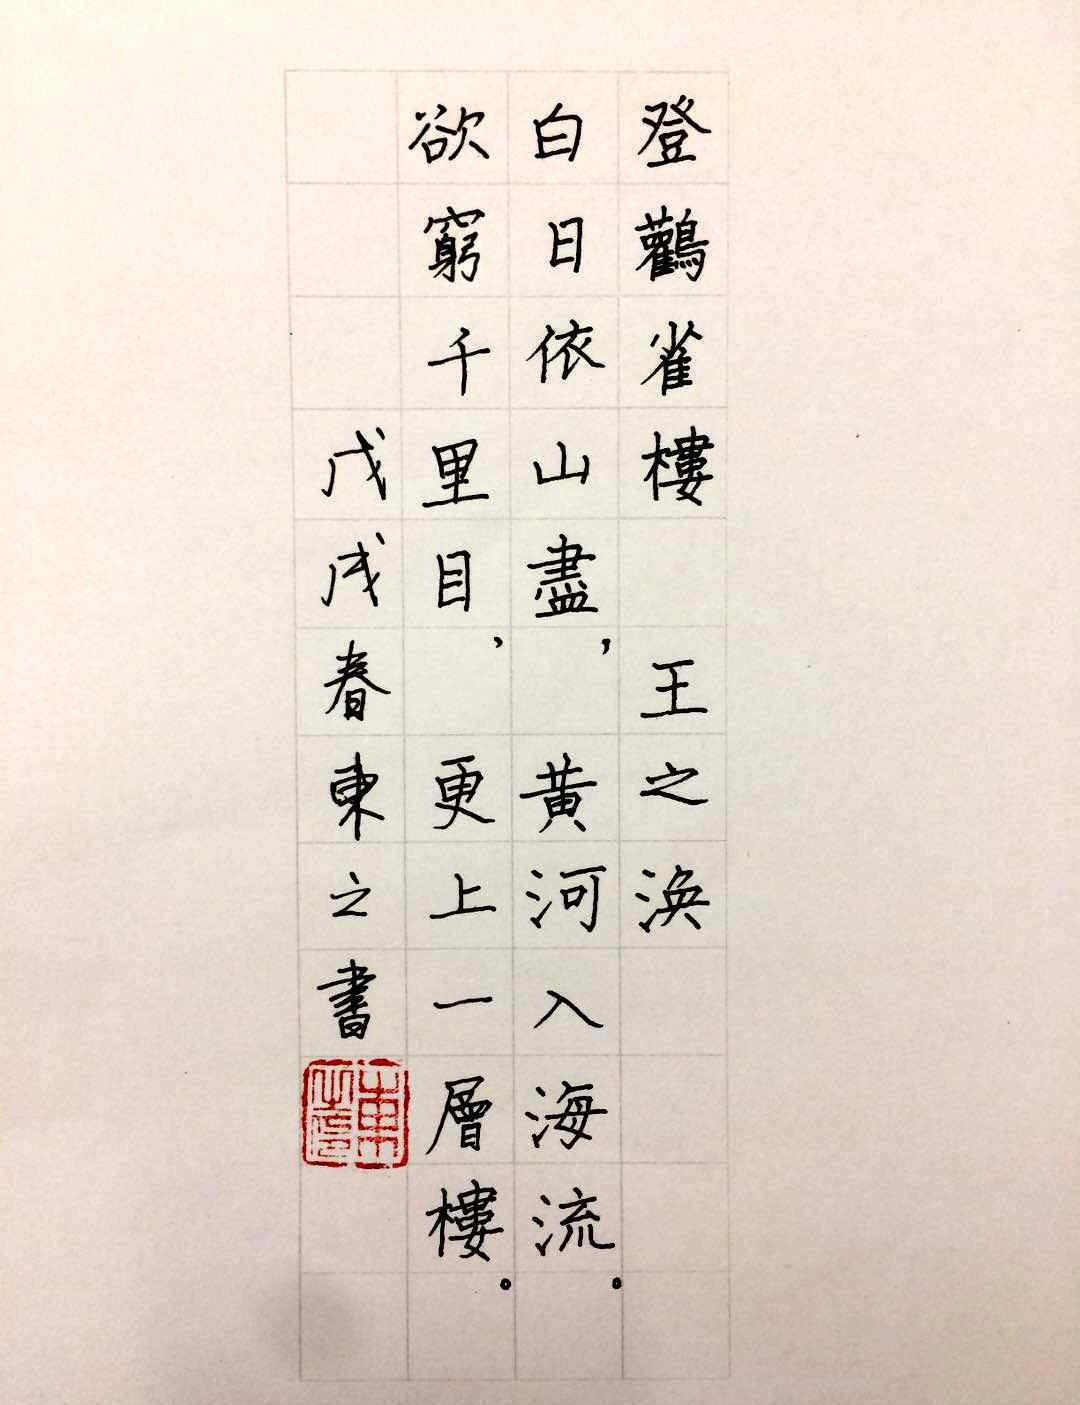 登鸛雀樓 王之渙
白日依山盡，黃河入海流。
欲窮千里目，更上一層樓。
戊戌春東之書
東之印